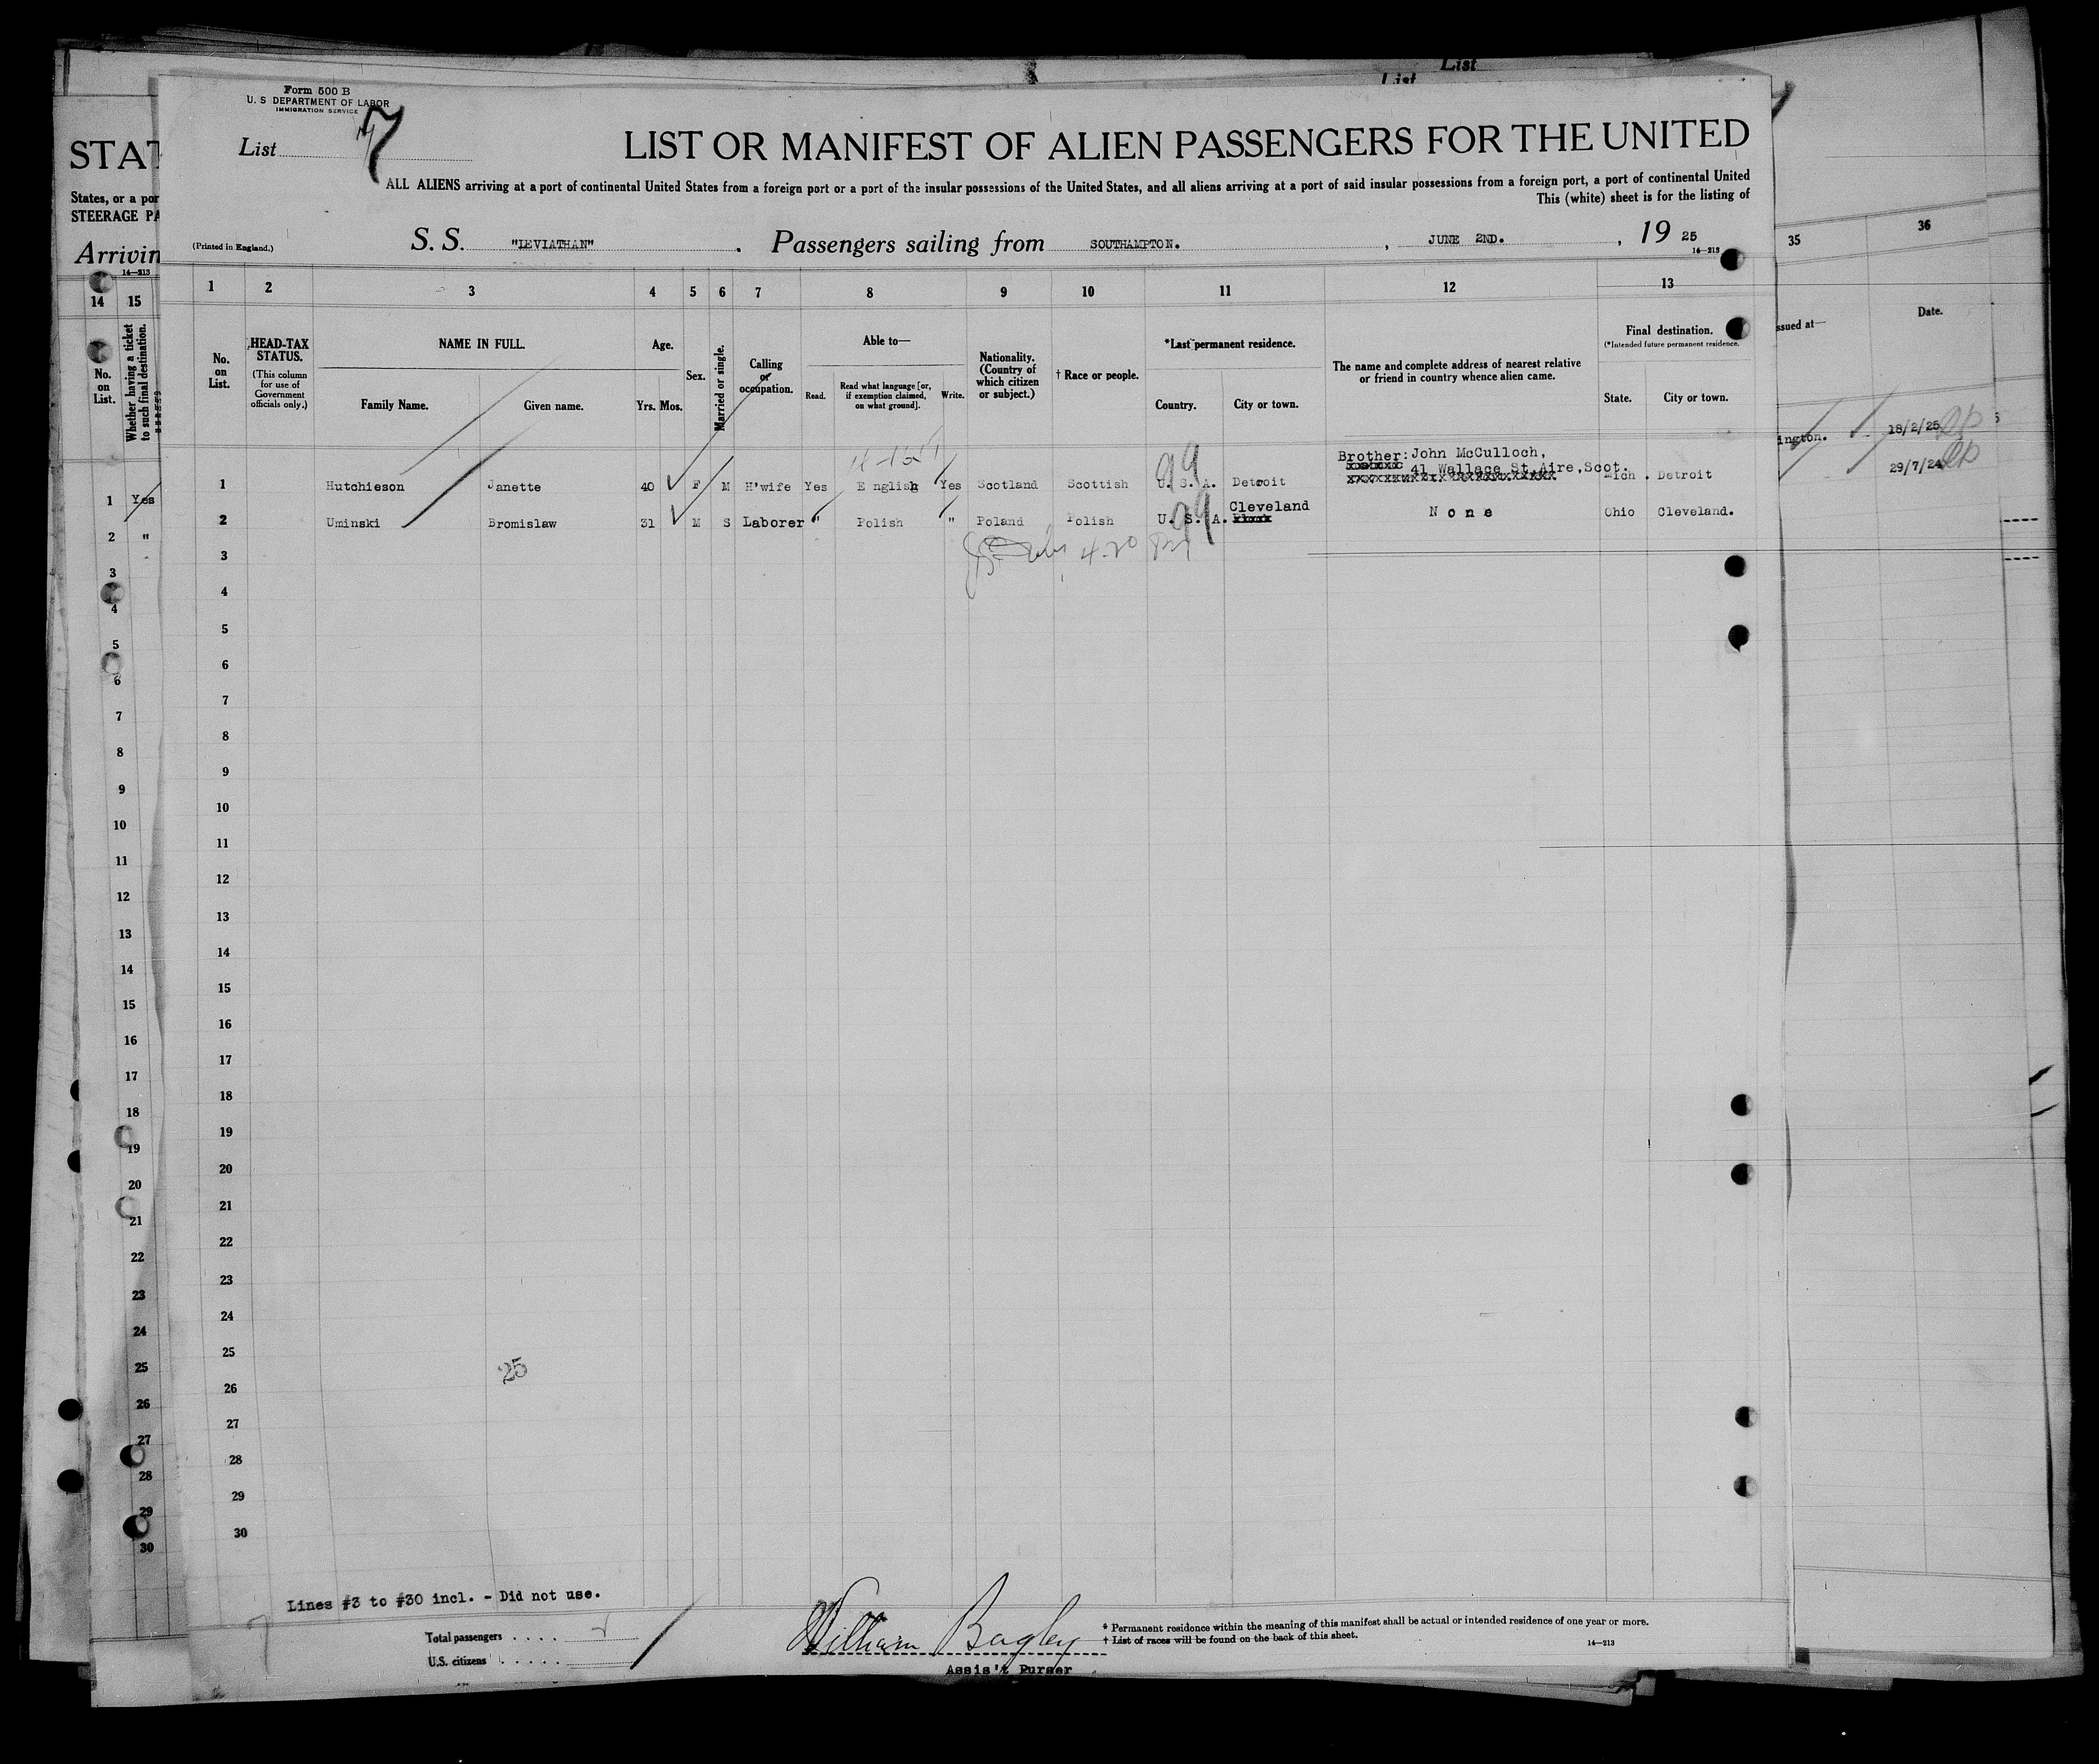 List
List
Form 500 B
U. S DEPARTMENT OF LABOR
IMMIGRATION SERVICE
List 7
LIST OR MANIFEST OF ALIEN PASSENGERS FOR THE UNITED
ALL ALIENS arriving at a port of continental United States from a foreign port or a port of the insular possessions of the United States, and all aliens arriving at a port of said insular possessions from a foreign port, a port of continental United
This (white) sheet is for the listing of
(Printed in England.) S. S. "LEVIATHAN" . Passengers sailing from SOUTHAMPTON. , JUNE 2ND. , 19 25
14—213
1 2 3 4 5 6 7 8 9 10 11 12 13
No. on List.
HEAD-TAX STATUS.
(This column for use of Government officials only.)
NAME IN FULL.
Family Name. Given name.
Age.
Yrs. Mos.
Sex.
Married or single.
Calling or occupation.
Able to—
Read. Read what language [or, if exemption claimed, on what ground]. Write.
Nationality. (Country of which citizen or subject.)
† Race or people.
*Last permanent residence.
Country. City or town.
The name and complete address of nearest relative or friend in country whence alien came.
Final destination.
(*Intended future permanent residence.
State. City or town.
99
Brother: John McCulloch,
41 Wallace St. Aire, Scot.
1 Hutchieson Janette 40 F M H'wife Yes English Yes Scotland Scottish U. S. A. Detroit Mich. Detroit
99
Cleveland
2 Uminski Bromislaw 31 M S Laborer " Polish " Poland Polish U. S. A. None Ohio Cleveland.
3
4
5
6
7
8
9
10
11
12
13
14
15
16
17
18
19
20
21
22
23
24
25
25
26
27
28
29
30
Lines #3 to #30 incl. - Did not use.
Total passengers . . . . 2
U.S. citizens . . . . .
William Bagley
Assis't Purser
* Permanent residence within the meaning of this manifest shall be actual or intended residence of one year or more.
† List of races will be found on the back of this sheet.
14—213
STAT
States, or a por
STEERAGE PA
Arrivin
14—213
14 15
No. on List.
Whether having a ticket to such final destination.
1 Yes
2 "
3
4
5
6
7
8
9
10
11
12
13
14
15
16
17
18
19
20
21
22
23
24
25
26
27
28
29
30
35 36
ssued at— Date.
ington. 18/2/25
29/7/24